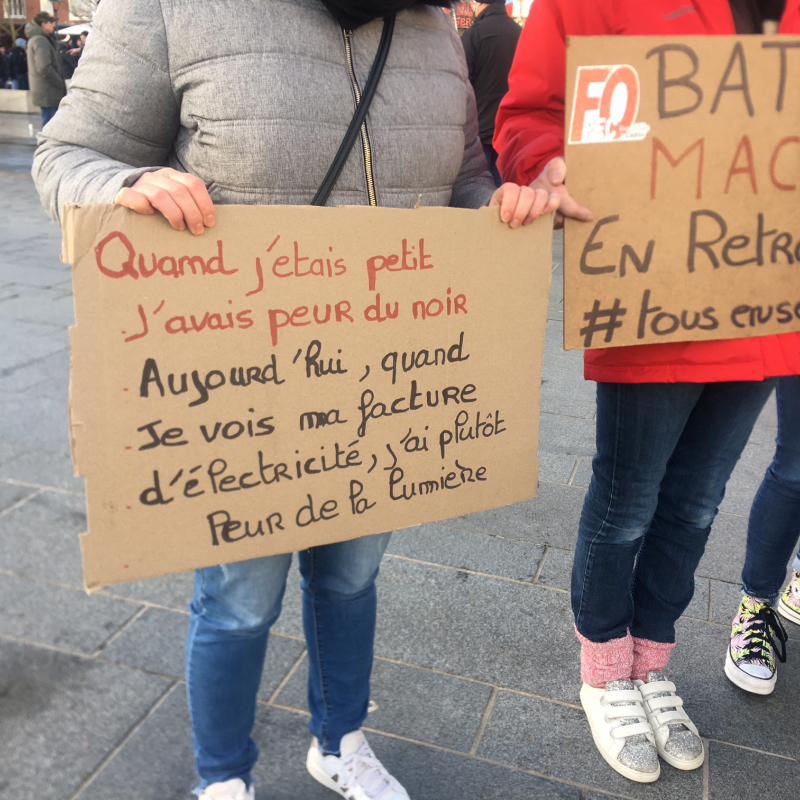 Quand j'étais petit
J'avais peur du noir
Aujourd'hui, quand
Je vois ma facture
d'électricité, j'ai plutôt
Peur de la lumière
FO
BAT
MAC
EN Retra
#tous ense